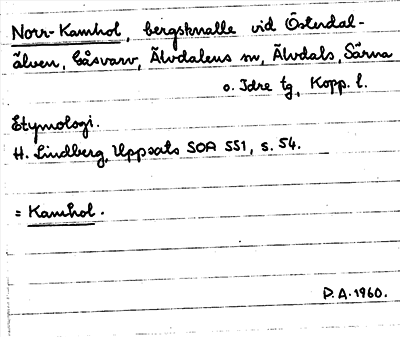 Norr-Kamhol, bergsknalle vid Österdal-
älven, Gåsvarv, Älvdalens sn, Älvdals, Särna
o. Idre tg, Kopp. l.
Etymologi.
H. Lindberg, Uppsats SOA 551, s. 54.
= Kamhol.
D.A. 1960.